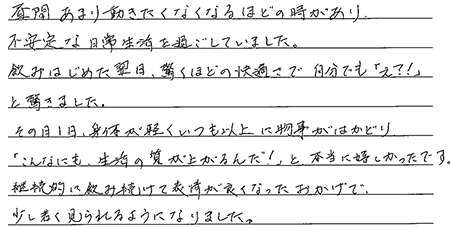 昼間あまり動きたくなくなるほどの時があり、
不安定な日常生活を過ごしていました。
飲みはじめた翌日、驚くほどの快適さで自分でも「えっ?!」
と驚きました。
その日1日、身体が軽くいつも以上に物事がはかどり
「こんなにも、生活の質が上がるんだ!」と、本当に嬉しかったです。
継続的に飲み続けて表情が良くなったおかげで、
少し若く見られるようになりました。